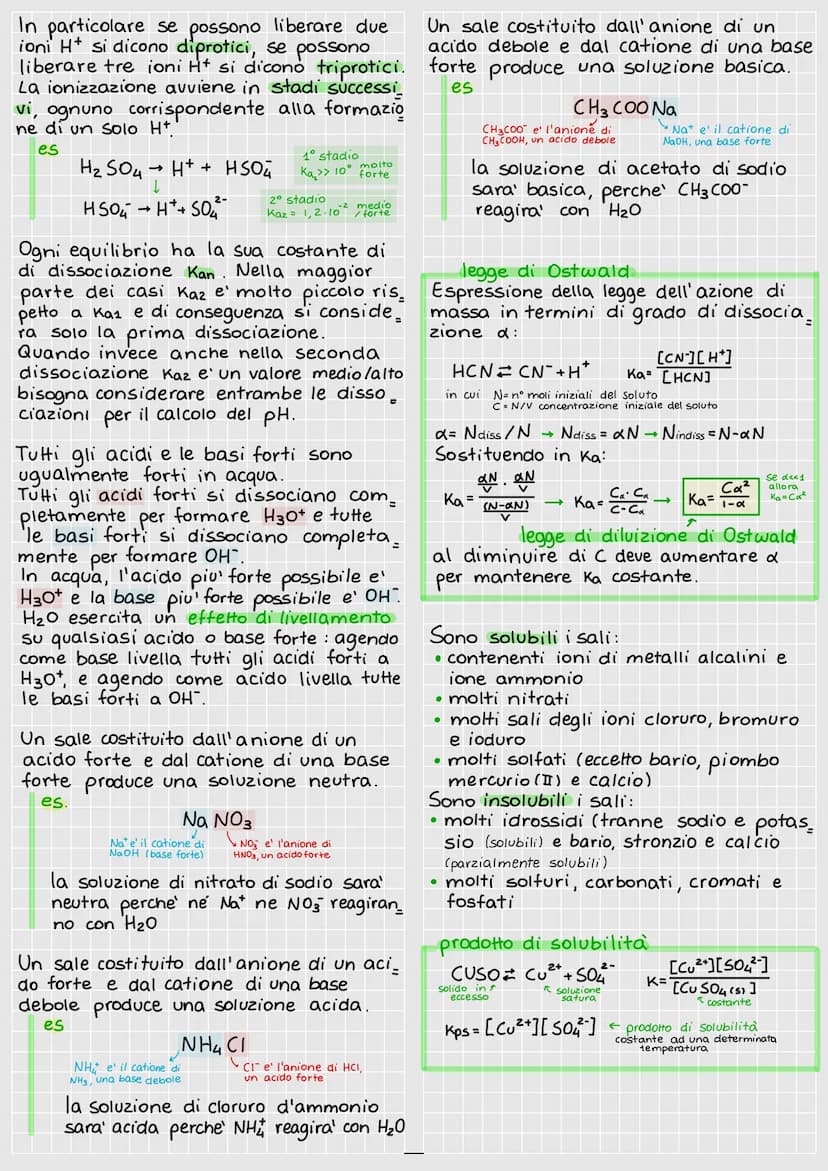 In particolare se possono liberare due
ioni H⁺ si dicono diprotici, se possono
liberare tre ioni H⁺ si dicono triprotici.
La ionizzazione avviene in stadi successi
vi, ognuno corrispondente alla formazio
ne di un solo H⁺.
es
H₂SO₄ → H⁺ + HSO₄⁻
1° stadio
Ka₁ >> 10° molto forte
↓
HSO₄⁻ → H⁺ + SO₄²⁻
2° stadio
Ka₂ = 1,2·10⁻² medio/forte
Ogni equilibrio ha la sua costante di
di dissociazione Kan. Nella maggior
parte dei casi Ka₂ e' molto piccolo ris_
petto a Ka₁ e di conseguenza si conside_
ra solo la prima dissociazione.
Quando invece anche nella seconda
dissociazione Ka₂ e' un valore medio/alto
bisogna considerare entrambe le disso_
ciazioni per il calcolo del pH.
Tutti gli acidi e le basi forti sono
ugualmente forti in acqua.
Tutti gli acidi forti si dissociano com_
pletamente per formare H₃O⁺ e tutte
le basi forti si dissociano completa_
mente per formare OH⁻.
In acqua, l'acido piu' forte possibile e'
H₃O⁺ e la base piu' forte possibile e' OH⁻.
H₂O esercita un effetto di livellamento
su qualsiasi acido o base forte : agendo
come base livella tutti gli acidi forti a
H₃O⁺, e agendo come acido livella tutte
le basi forti a OH⁻.
Un sale costituito dall'anione di un
acido forte e dal catione di una base
forte produce una soluzione neutra.
es.
NaNO₃
Na⁺ e' il catione di
NaOH (base forte)
NO₃⁻ e' l'anione di
HNO₃, un acido forte
la soluzione di nitrato di sodio sara'
neutra perche' né Na⁺ ne NO₃⁻ reagiran_
no con H₂O
Un sale costituito dall'anione di un aci_
do forte e dal catione di una base
debole produce una soluzione acida.
es
NH₄Cl
NH₄⁺ e' il catione di
NH₃, una base debole
Cl⁻ e' l'anione di HCl,
un acido forte
la soluzione di cloruro d'ammonio
sara' acida perche' NH₄⁺ reagira' con H₂O
Un sale costituito dall'anione di un
acido debole e dal catione di una base
forte produce una soluzione basica.
es
CH₃COONa
CH₃COO⁻ e' l'anione di
CH₃COOH, un acido debole
Na⁺ e' il catione di
NaOH, una base forte
la soluzione di acetato di sodio
sara' basica, perche' CH₃COO⁻
reagira' con H₂O
legge di Ostwald
Espressione della legge dell'azione di
massa in termini di grado di dissocia_
zione α:
HCN ⇄ CN⁻ + H⁺ Ka = [CN⁻][H⁺] / [HCN]
in cui N = n° moli iniziali del soluto
C = N/V concentrazione iniziale del soluto
α = Ndiss/N → Ndiss = αN → Nindiss = N-αN
Sostituendo in Ka:
Ka = (αN/V · αN/V) / ((N-αN)/V) → Ka = Cα · Cα / C-Cα → Ka = Cα² / 1-α
se α<<1
allora
Ka=Cα²
legge di diluizione di Ostwald
al diminuire di C deve aumentare α
per mantenere Ka costante.
Sono solubili i sali:
• contenenti ioni di metalli alcalini e
ione ammonio
• molti nitrati
• molti sali degli ioni cloruro, bromuro
e ioduro
• molti solfati (eccetto bario, piombo
mercurio (II) e calcio)
Sono insolubili i sali:
• molti idrossidi (tranne sodio e potas_
sio (solubili) e bario, stronzio e calcio
(parzialmente solubili)
• molti solfuri, carbonati, cromati e
fosfati
prodotto di solubilità
CUSO ⇄ Cu²⁺ + SO₄²⁻ K = [Cu²⁺][SO₄²⁻] / [CuSO₄(s)]
solido in ↑
eccesso
↖ soluzione
satura
↖ costante
Kps = [Cu²⁺][SO₄²⁻] ← prodotto di solubilità
costante ad una determinata
temperatura